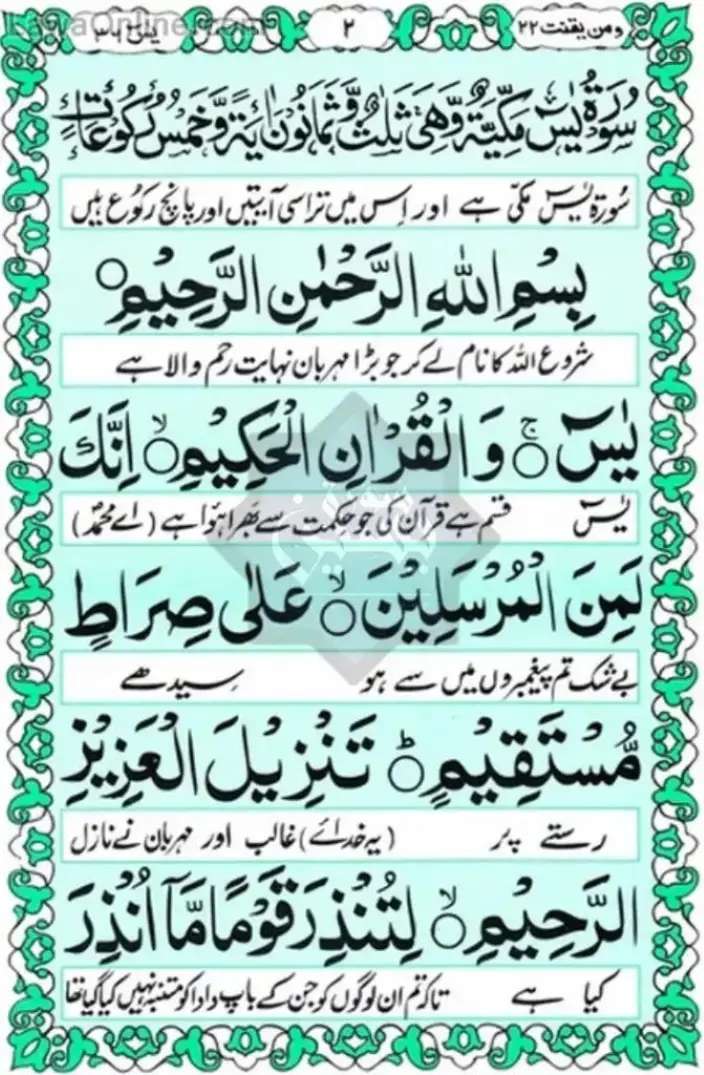 ومن یقنت ۲۲ ۲ یٰسٓ ۳۶
سُوْرَةُ یٰسٓ مَكِّیَّةٌ وَّهِیَ ثَلٰثٌ وَّثَمَانُوْنَ اٰیَةً وَّخَمْسُ رُكُوْعَاتٍ
سُورۃ یٰسٓ مکّی ہے اور اِس میں تراسی آیتیں اور پانچ رکوع ہیں
بِسْمِ اللّٰهِ الرَّحْمٰنِ الرَّحِیْمِ ○
شروع اللہ کا نام لے کر جو بڑا مہربان نہایت رحم والا ہے
یٰسٓ ○ۚ وَالْقُرْاٰنِ الْحَكِیْمِ ○ۙ اِنَّكَ
یٰسٓ قسم ہے قرآن کی جو حکمت سے بھرا ہوا ہے (اے محمدؐ)
لَمِنَ الْمُرْسَلِیْنَ ○ۙ عَلٰی صِرَاطٍ
بے شک تم پیغمبروں میں سے ہو سیدھے
مُّسْتَقِیْمٍ ○ؕ تَنْزِیْلَ الْعَزِیْزِ
رستے پر (یہ خدائے) غالب اور مہربان نے نازل
الرَّحِیْمِ ○ۙ لِتُنْذِرَ قَوْمًا مَّاۤ اُنْذِرَ
کیا ہے تاکہ تم ان لوگوں کو جن کے باپ دادا کو متنبہ نہیں کیا گیا تھا